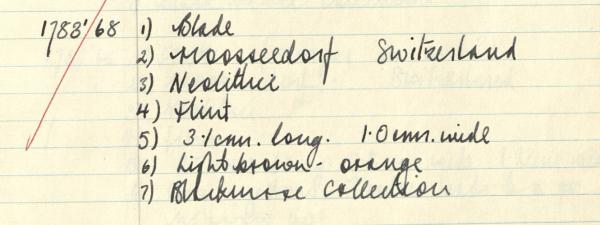 1783'68 1) Blade
2) Moosseedorf Switzerland
3) Neolithic
4) Flint
5) 3.1cms. long. 1.0cms. wide
6) Light brown - orange
7) Blackmore Collection